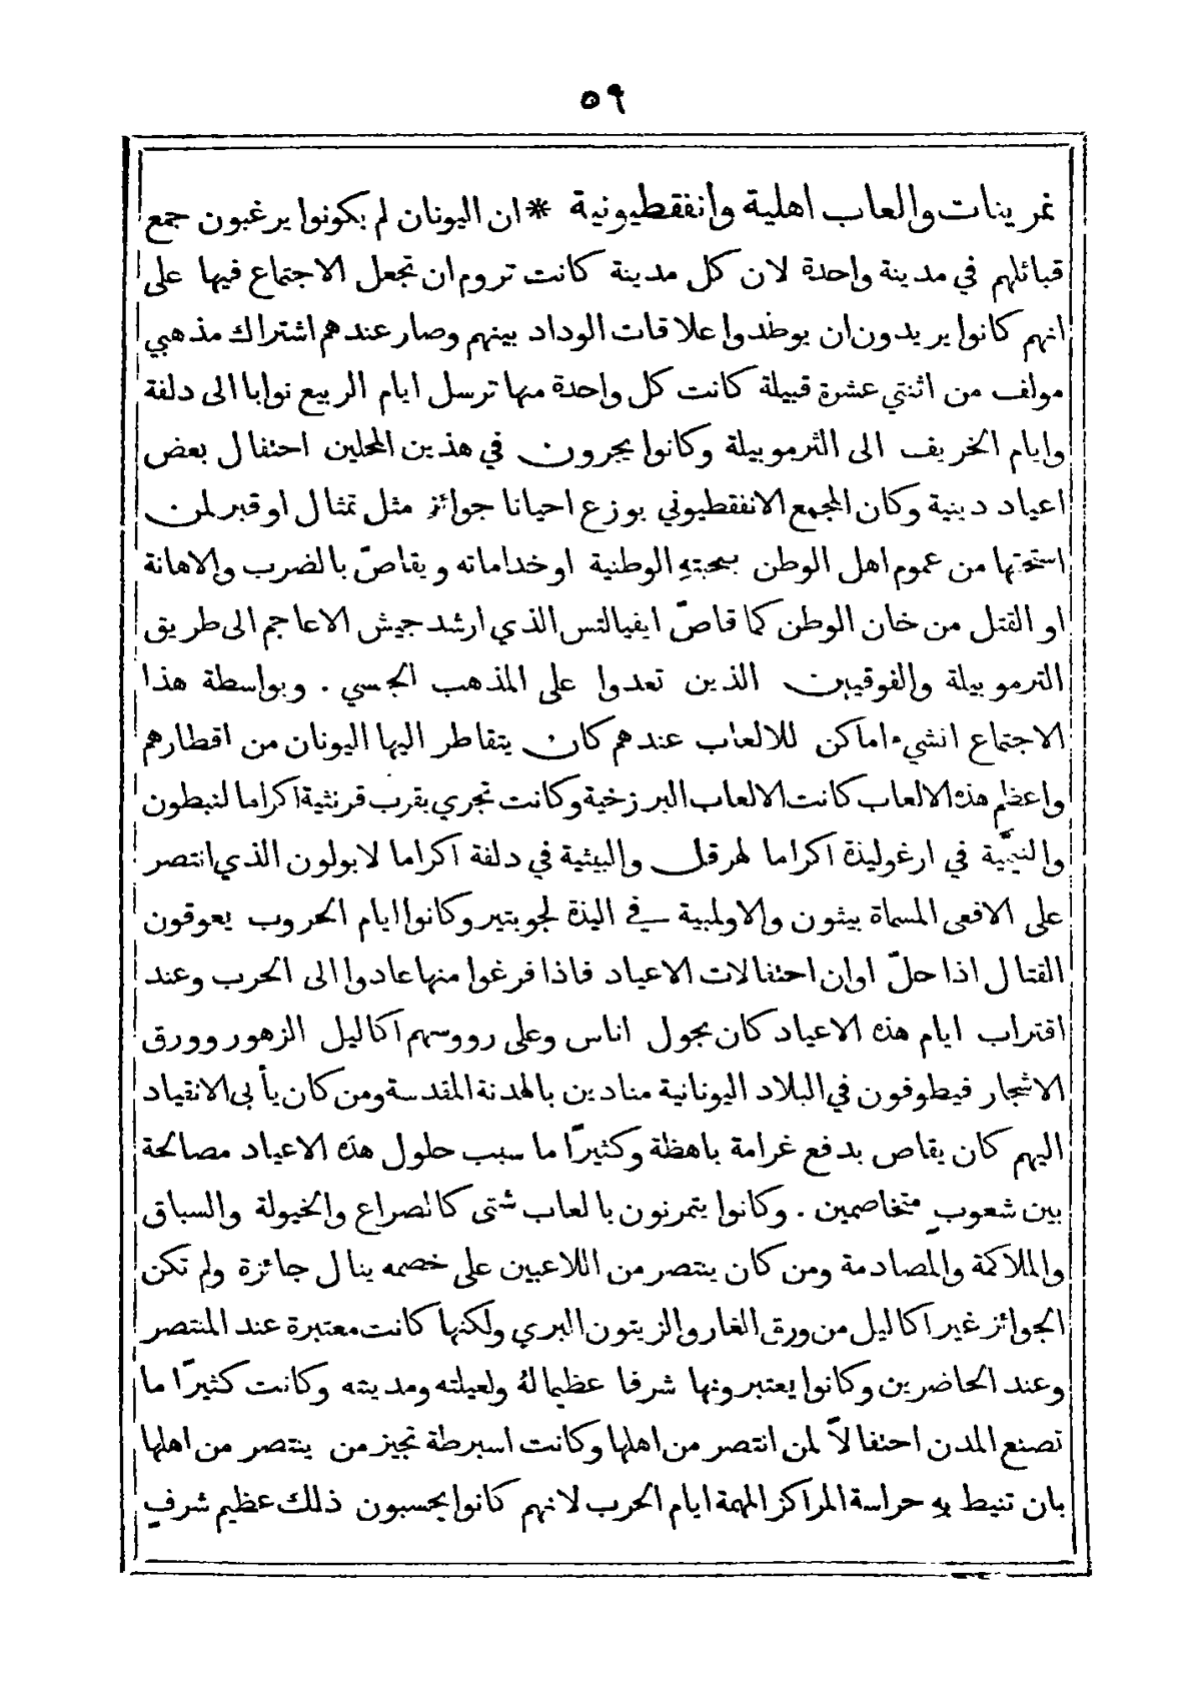 ٥٩
تمرينات والعاب اهلية وانفقطيونية * ان اليونان لم يكونوا يرغبون جمع
قبائلهم في مدينة واحدة لان كل مدينة كانت تروم ان تجعل الاجتماع فيها على
انهم كانوا يريدون ان يوطدوا علاقات الوداد بينهم وصار عندهم اشتراك مذهبي
مولف من اثنتي عشرة قبيلة كانت كل واحدة منها ترسل ايام الربيع نوابا الى دلفة
وايام الخريف الى الثرموبيلة وكانوا يجرون في هذين المحلين احتفال بعض
اعياد دينية وكان المجمع الانفقطيوني يوزع احيانا جوائز مثل تمثال او قبر لمن
استحقها من عموم اهل الوطن بمحبتهِ الوطنية او خداماته ويقاصّ بالضرب والاهانة
او القتل من خان الوطن كما قاصّ ايفيالتس الذي ارشد جيش الاعاجم الى طريق
الترموبيلة والفوقيين الذين تعدوا على المذهب الجنسي . وبواسطة هذا
الاجتماع انشيء اماكن للالعاب عندهم كان يتقاطر اليها اليونان من اقطارهم
واعظم هذه الالعاب كانت الالعاب البرزخية وكانت تجري بقرب قرنثية اكراما لنبطون
والنيميَّة في ارغوليذة اكراما لهرقل والبيثية في دلفة اكراما لابولون الذي انتصر
على الافعى المسماة بيثون والاولمبية في اليذة لجوبتير وكانوا ايام الحروب يعوقون
القتال اذا حلّ اوان احتفالات الاعياد فاذا فرغوا منها عادوا الى الحرب وعند
اقتراب ايام هذه الاعياد كان يجول اناس وعلى رووسهم اكاليل الزهور وورق
الاشجار فيطوفون في البلاد اليونانية منادين بالهدنة المقدسة ومن كان يأبى الانقياد
اليهم كان يقاص بدفع غرامة باهظة وكثيرًا ما سبب حلول هذه الاعياد مصالحة
بين شعوبٍ متخاصمين . وكانوا يتمرنون بالعاب شتى كالصراع والخيولة والسباق
والملاكمة والمصادمة ومن كان ينتصر من اللاعبين على خصمه ينال جائزة ولم تكن
الجوائز غير اكاليل من ورق الغار والزيتون البري ولكنها كانت معتبرة عند المنتصر
وعند الحاضرين وكانوا يعتبرونها شرفا عظيما لهُ ولعيلته ومدينته وكانت كثيرًا ما
تصنع المدن احتفالاً لمن انتصر من اهلها وكانت اسبرطة تجيز من ينتصر من اهلها
بان تنيط بهِ حراسة المراكز المهمة ايام الحرب لانهم كانوا يحسبون ذلك عظيم شرفٍ